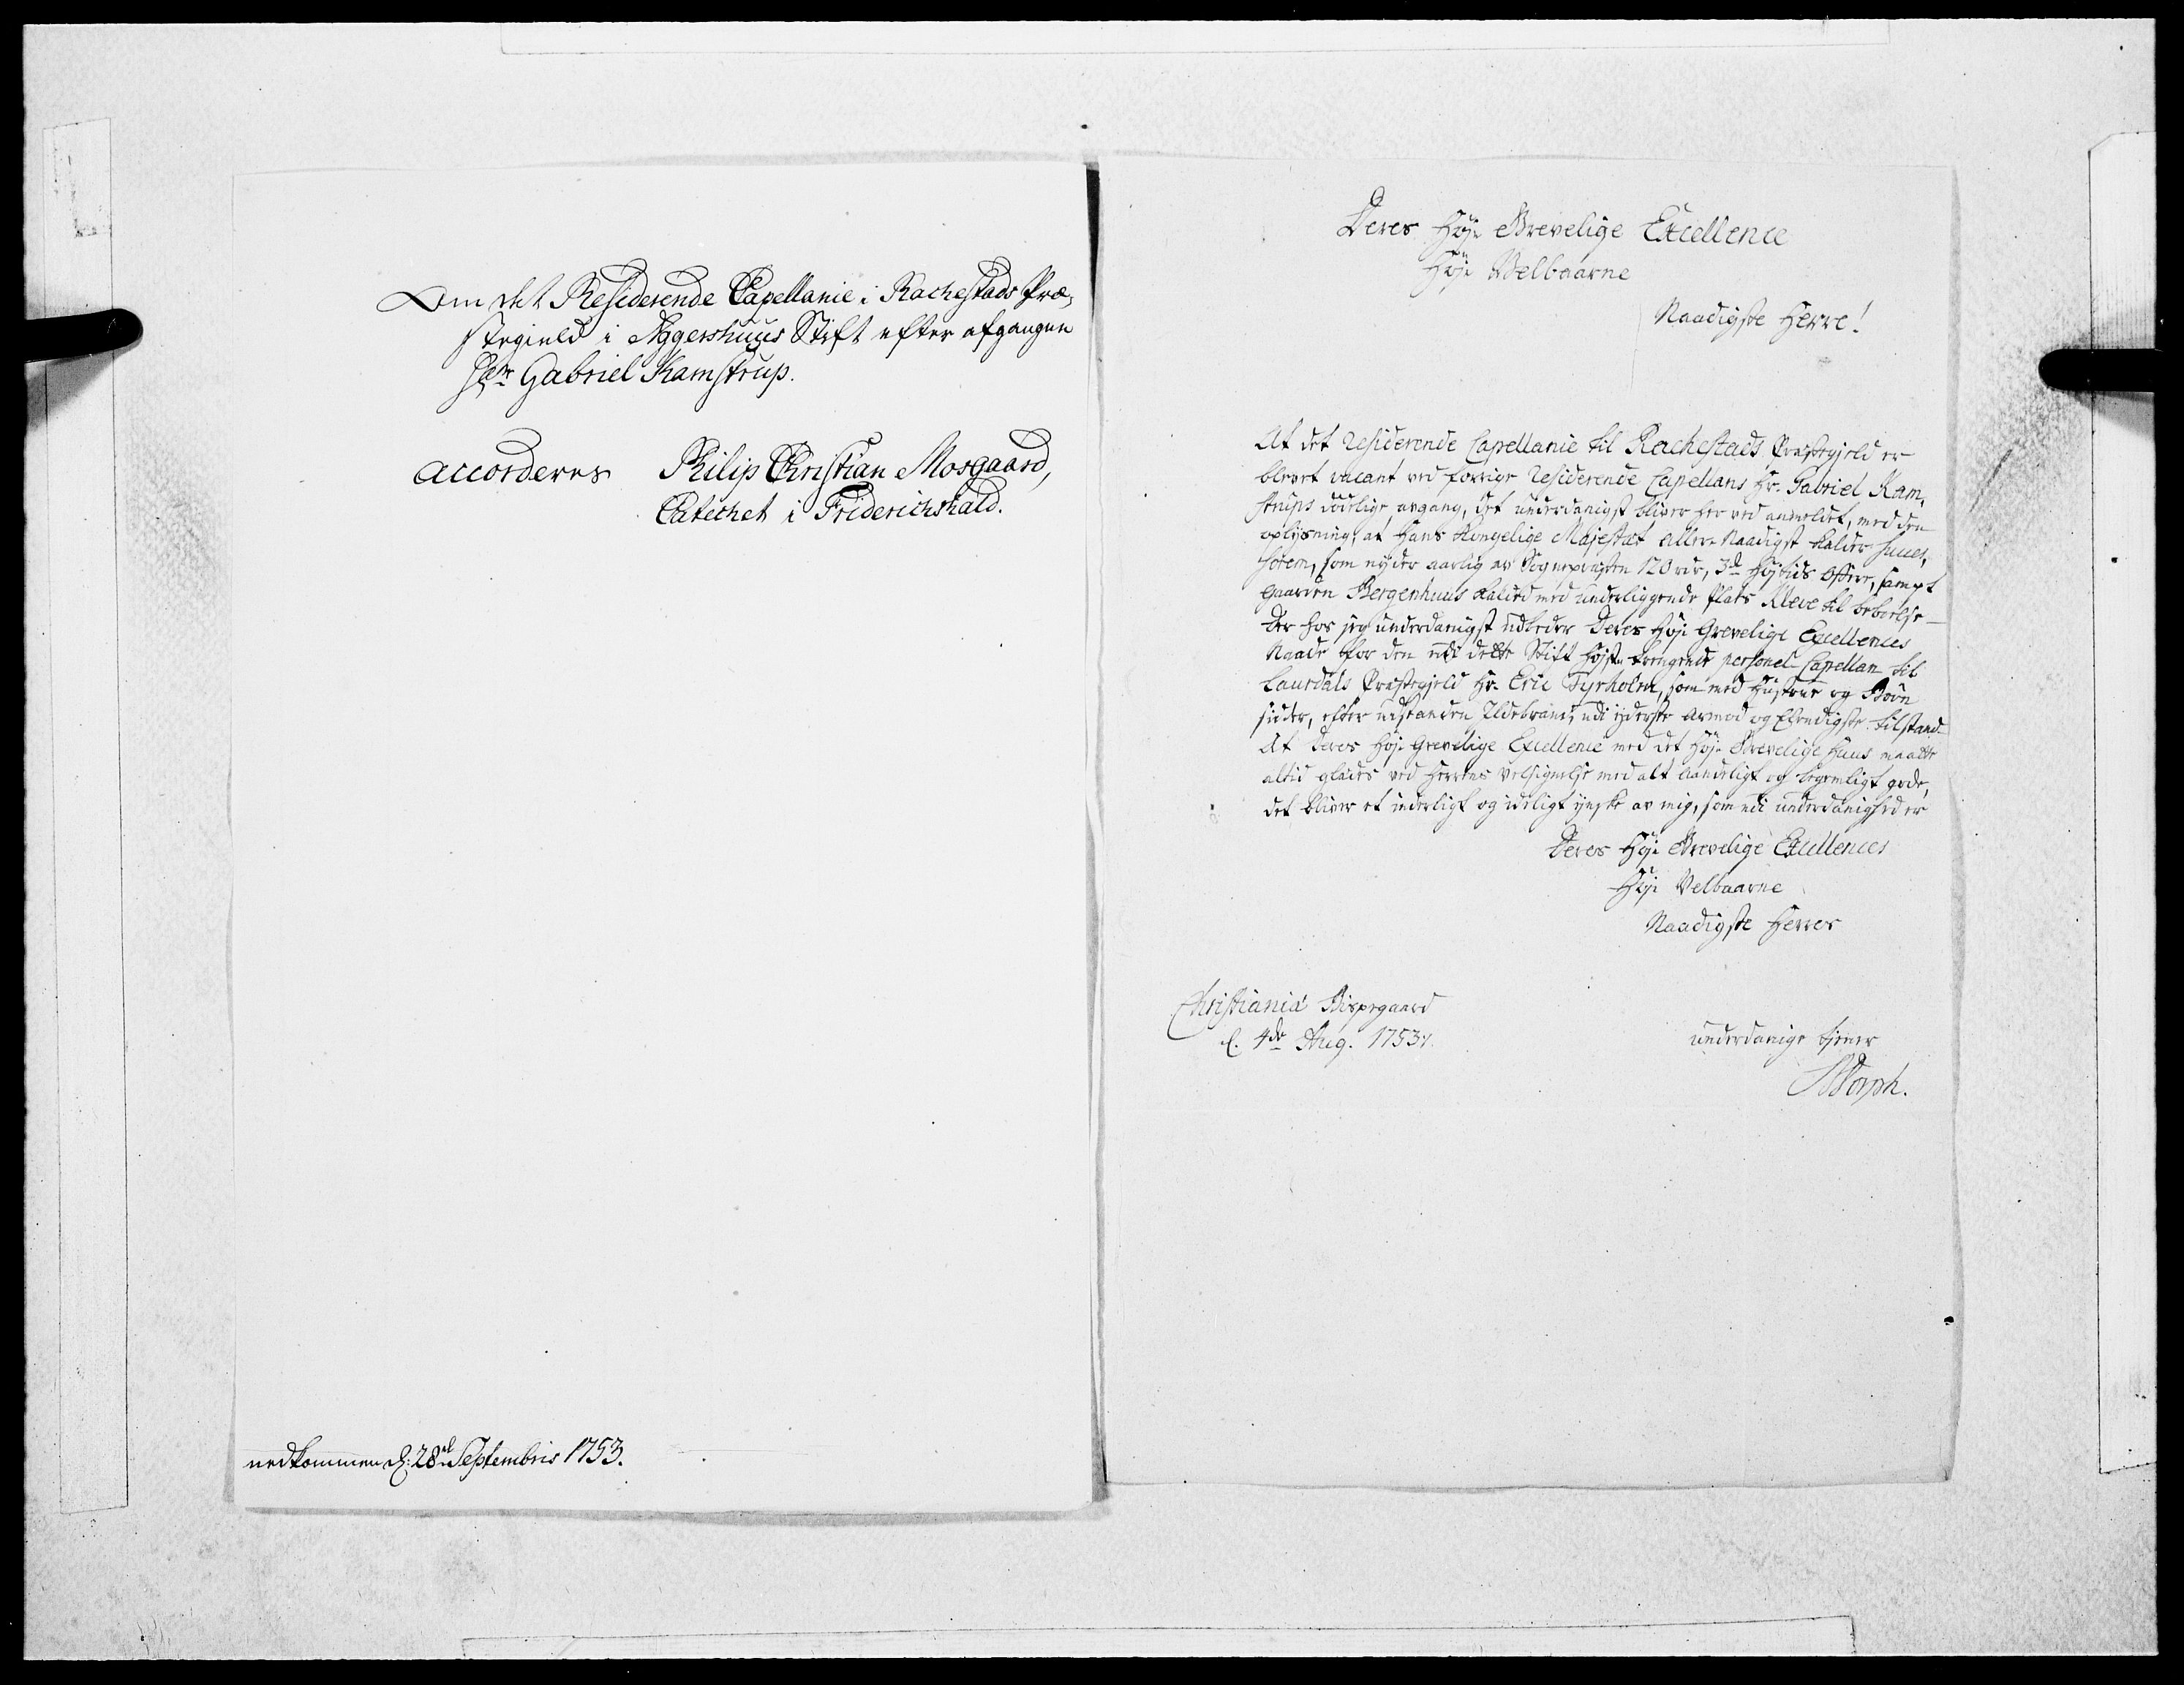 Om det Residerende Capellanie i Rachestads Præ-
stegield i Aggershuus Stift efter afgangne
Hr. Gabriel Kamstrup.
accorderes Philip Christian Mosgaard,
Catechet i Friderichshald.
nedkommen d: 28de Septembris 1753.
Deres Høje Grevelige Excellence
Høje Velbaarne
Naadigste Herre!
At det residerende Capellanie til Rachestads Præstegjeld er
blevet vacant ved forrige residerende Capellans Hr. Gabriel Kam-
strups dødelige avgang, det underdanigst bliver her ved anmeldet, med den
oplysning, at Hans Kongelige Majestæt aller-Naadigst kalder
som nyder aarlig av Sognepræsten 120 rdr, 3de Højtids Offere, sampt
gaarden Bergenhuus kalded med underliggende Plads Kleve til beboelse
Der hos jeg underdanigst udbeder Deres Høje Grevelige Excellences
Naade for den udi dette Stift højst trengende personel Capellan til
Laurdals Præstegjeld Hr. Eric Tyrholm, som med Hustrue og Børn
sidder, efter udstanden Ildebrand, udi yderste armod og Elendigste tilstand.
At Deres Høje Grevelige Excellence med det Høje Grevelige Huus maatte
altid glædes ved Herrens velsignelse med alt Aandeligt og legemligt gode,
det bliver et inderligt og ideligt ynske av mig, som udi underdanighed er
Deres Høje Grevelige Excellences
Høje Velbaarne
Naadigste Herres
Christiania Bispegaard
d. 4de Aug. 1753.
underdanige tjener
Dorph.